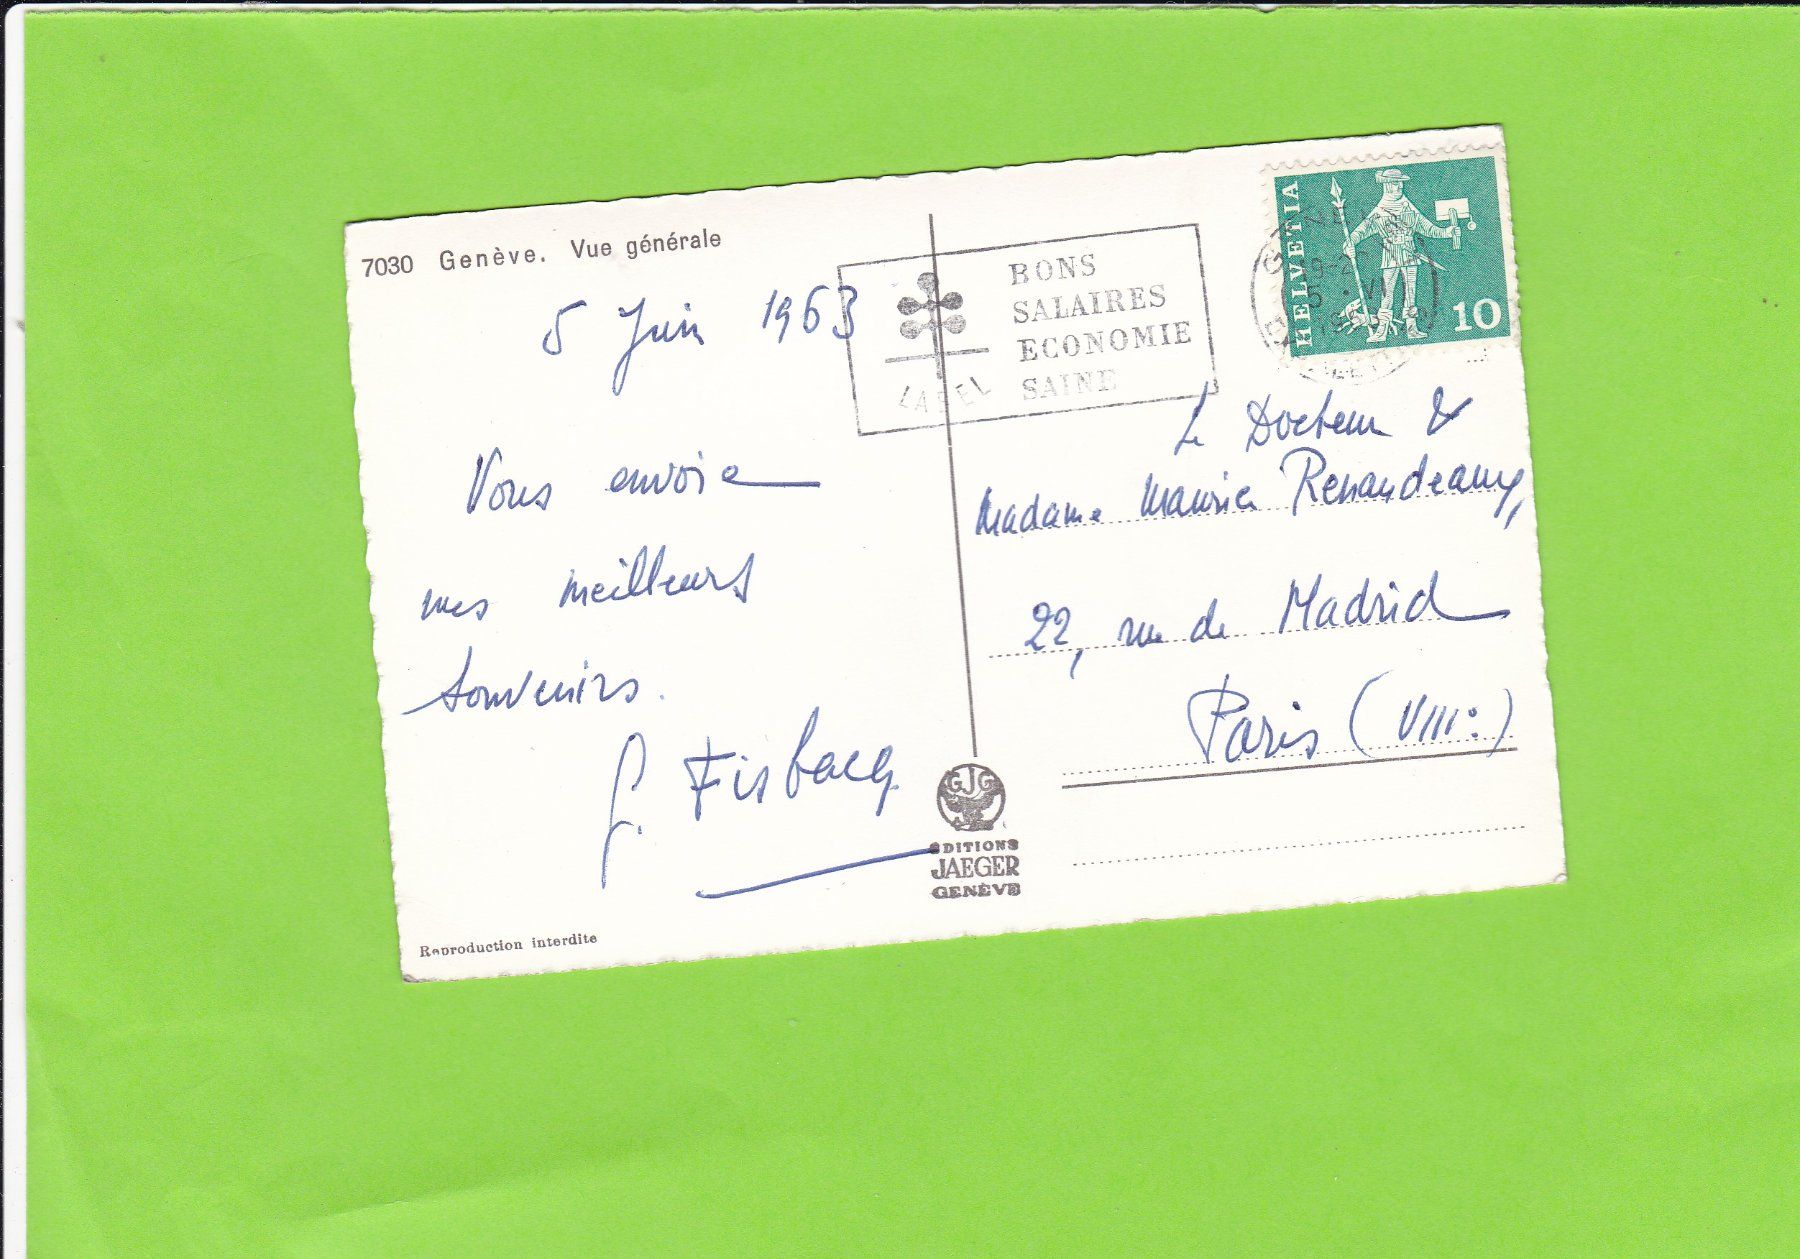 7030 Genève. Vue générale
5 Juin 1963
Vous envoie
mes meilleurs
souvenirs.
G. Fisbacq
Reproduction interdite
BONS
SALAIRES
ECONOMIE
SAINE
LABEL
HELVETIA
10
Le Docteur &
Madame Maurice Renaudeaux,
22, rue de Madrid
Paris (VIIIe)
GJG
EDITIONS
JAEGER
GENÈVE